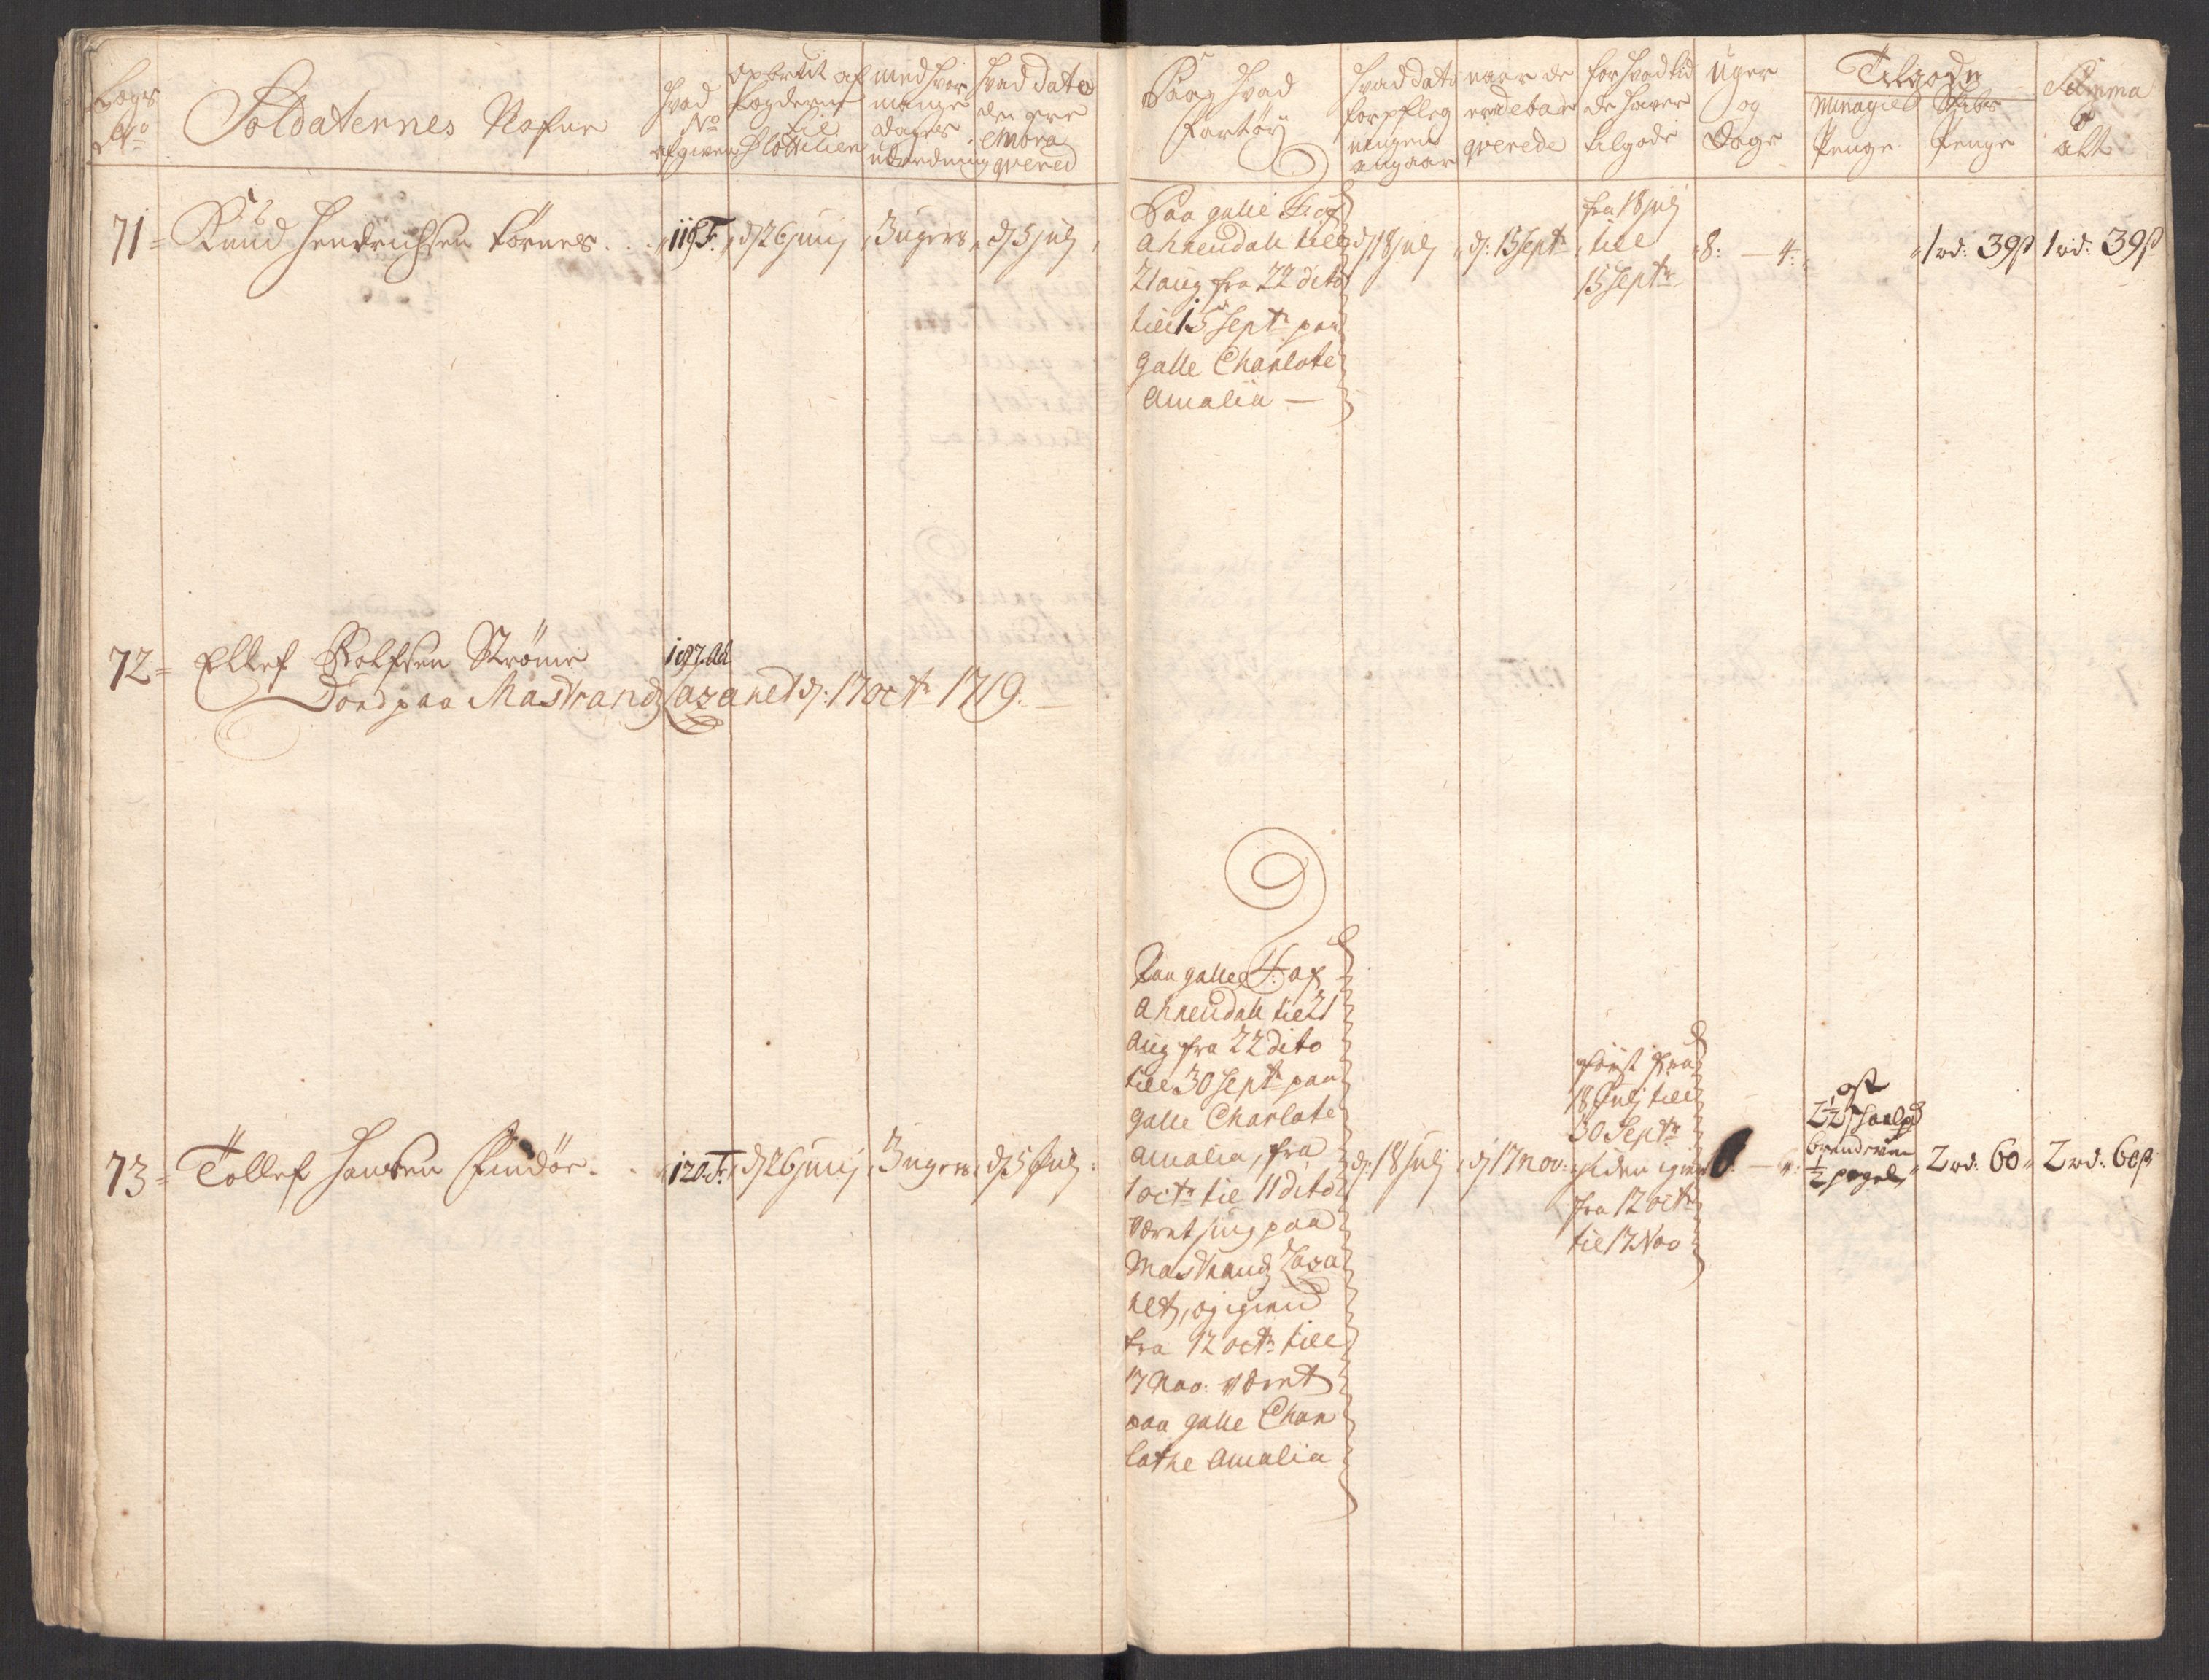 Lægs
No
Soldaternes Nafne
Hvad
No
afgiven
Opbrut af
Lægderne
til
Flottilien
med hvor
mange
Dages
udredning
Hvad Dato
de ere
Embra
qvered
Paa Hvad
Fartöy
Hvad dato
forpfleg
ningen
angaar
naar de
ere debar
qverede
for hvad tid
de haver
tilgode
Uger
og
Dage
Tilgode
Minagie
Penge
Skibs
Penge
Summa
alt
71 = Knud Hendrichsen Förnes . . 119 F. d 26 junij 3 ugers d 5 julj
Paa galle F: af
Ahrendall till
21 aug fra 22 dito
till 15 Septr paa
Galle Charlote
Amalia —
d 18 julj d: 15 Septr
fra 18 julj
till
15 Septr
8: — 4: 1 rd: 39 ß 1 rd: 39 ß
72 = Ellef Rolfsen Ströme 107. Ad
Död paa Mastrand Lazaret d: 17 octr 1719. —
73 = Tollef Hansen Findöe . . 120. F. d 26 junij 3 ugers d 5 Julj
Paa galle F: af
Ahrendall till 21
Aug fra 22 dito
till 30 Septr paa
Galle Charlote
Amalia, fra
1 octr til 11 dito
været siug paa
Mastrand Laza
ret, og igien
fra 12 octr till
17 Nov: været
paa galle Char
lothe Amalia
d: 18 julj d 17 Nov:
först fra
18 Julj till
30 Septr
siden igien
fra 12 octr
til 17 Nov
ost
2 1/2 Skaalpd
brendeviin
1/2 pægel
2 rd: 60 2 rd: 60 ß